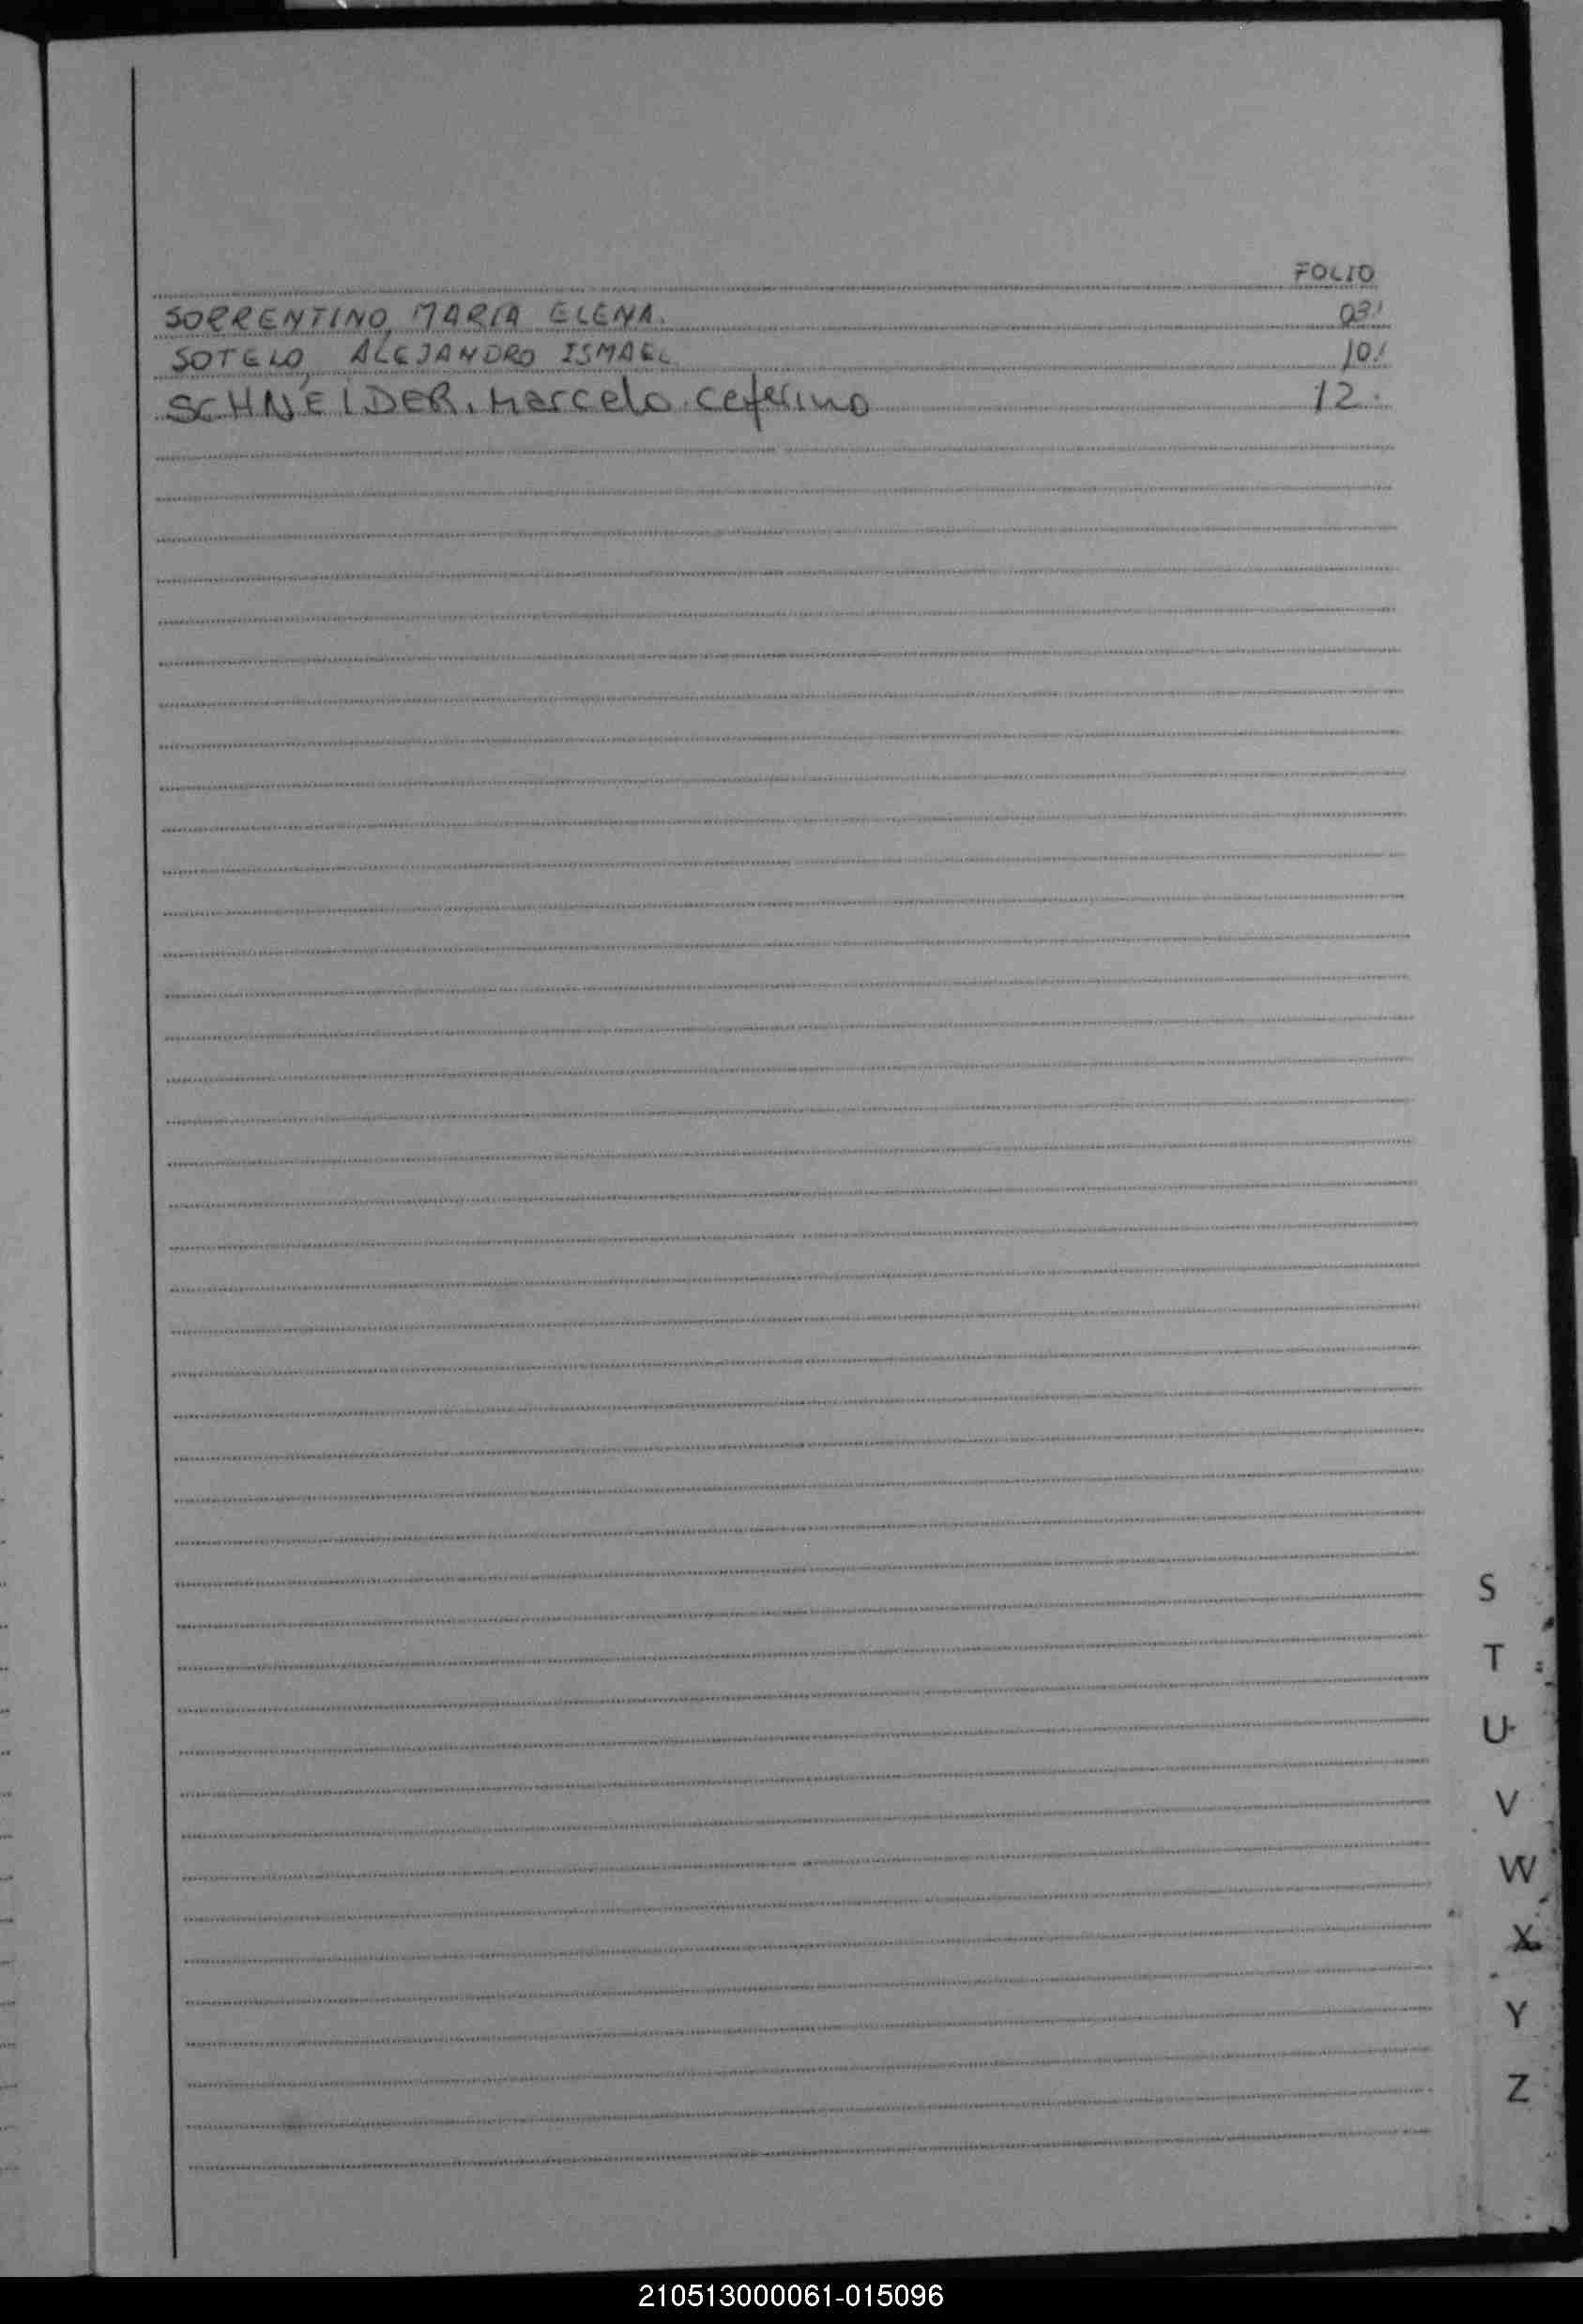 FOLIO
SORRENTINO, MARIA ELENA. 03!
SOTELO, ALEJANDRO ISMAEL 10!
SCHNEIDER, Marcelo Ceferino 12.
S
T
U
V
W
X
Y
Z
210513000061-015096